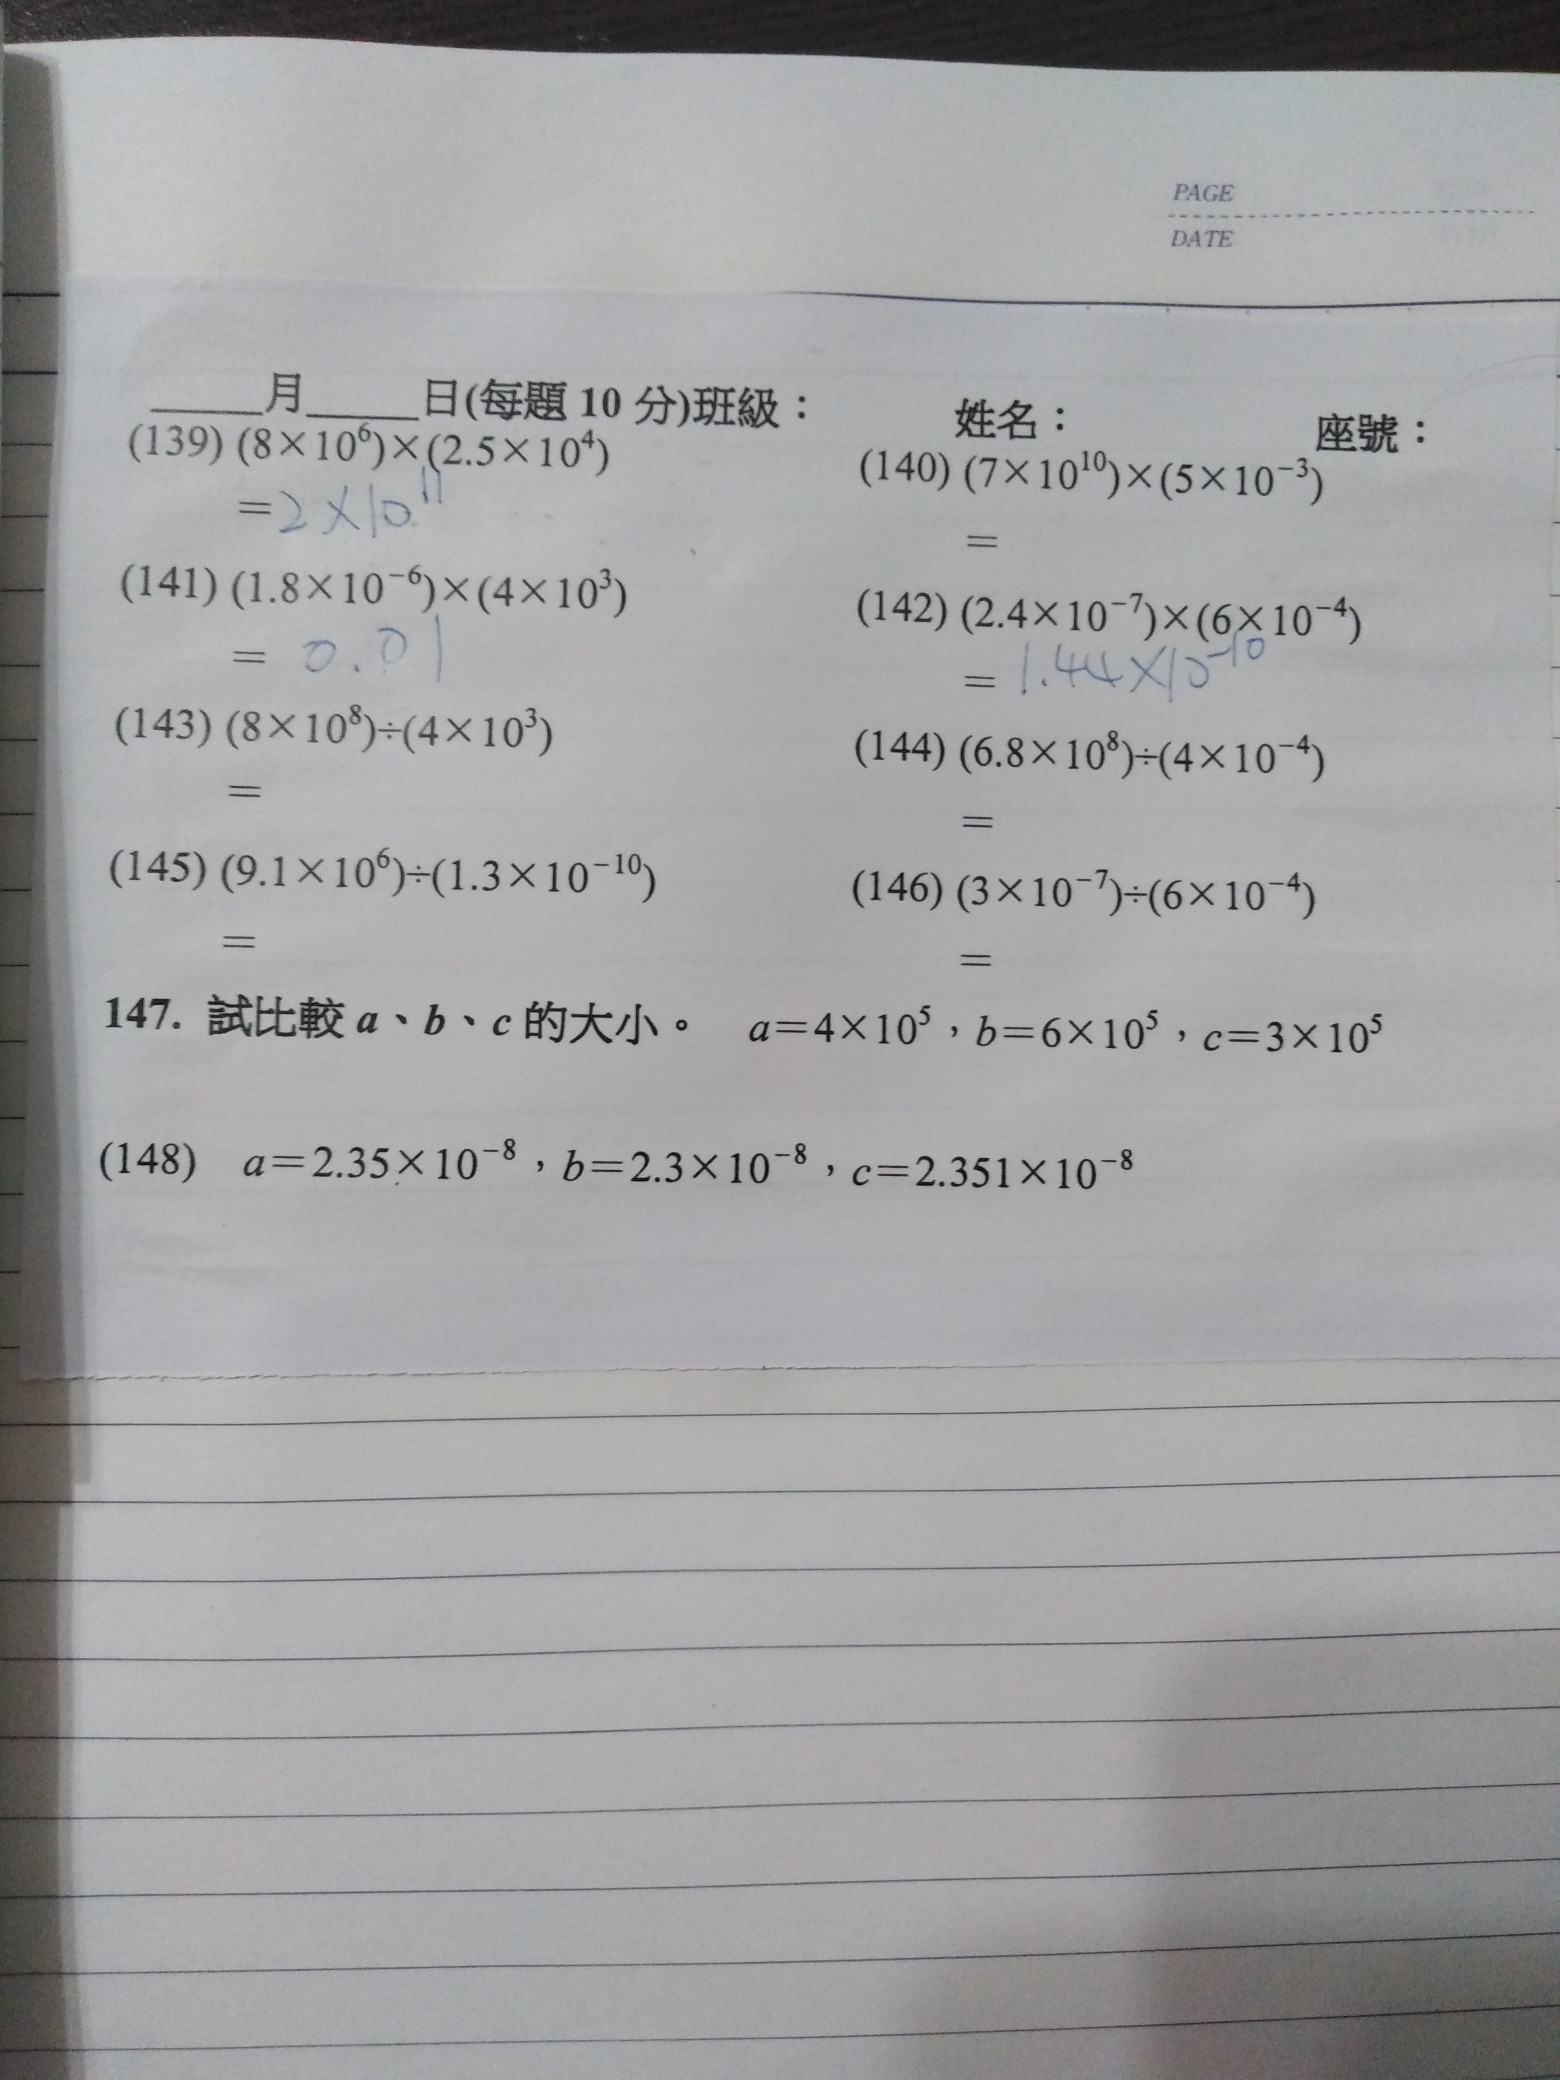 PAGE
DATE
_____月_____日(每題 10 分)班級： 姓名： 座號：
(139) (8×10⁶)×(2.5×10⁴)
(140) (7×10¹⁰)×(5×10⁻³)
=2×10¹¹
=
(141) (1.8×10⁻⁶)×(4×10³)
(142) (2.4×10⁻⁷)×(6×10⁻⁴)
= 0.01
= 1.44×10⁻¹⁰
(143) (8×10⁸)÷(4×10³)
(144) (6.8×10⁸)÷(4×10⁻⁴)
=
=
(145) (9.1×10⁶)÷(1.3×10⁻¹⁰)
(146) (3×10⁻⁷)÷(6×10⁻⁴)
=
=
147. 試比較 a、b、c 的大小。 a=4×10⁵，b=6×10⁵，c=3×10⁵
(148) a=2.35×10⁻⁸，b=2.3×10⁻⁸，c=2.351×10⁻⁸